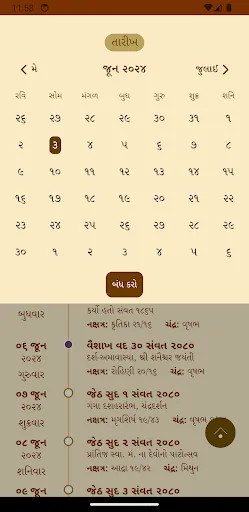 11:58
તારીખ
મે
જૂન ૨૦૨૪
જુલાઈ
રવિ સોમ મંગળ બુધ ગુરુ શુક્ર શનિ
૨૬ ૨૭ ૨૮ ૨૯ ૩૦ ૩૧ ૧
૨ ૩ ૪ ૫ ૬ ૭ ૮
૯ ૧૦ ૧૧ ૧૨ ૧૩ ૧૪ ૧૫
૧૬ ૧૭ ૧૮ ૧૯ ૨૦ ૨૧ ૨૨
૨૩ ૨૪ ૨૫ ૨૬ ૨૭ ૨૮ ૨૯
૩૦ ૧ ૨ ૩ ૪ ૫ ૬
બંધ કરો
કર્યો હતો સંવત ૧૮૬૫
બુધવાર
નક્ષત્ર: કૃતિકા ૨૧/૧૬ ચંદ્ર: વૃષભ
૦૬ જૂન
વૈશાખ વદ ૩૦ સંવત ૨૦૮૦
૨૦૨૪
દર્શ-અમાવાસ્યા, શ્રી શનૈશ્ચર જયંતી
ગુરુવાર
નક્ષત્ર: રોહિણી ૨૦/૧૬ ચંદ્ર: વૃષભ
૦૭ જૂન
જેઠ સુદ ૧ સંવત ૨૦૮૦
૨૦૨૪
ગંગા દશહરારંભ, ચંદ્રદર્શન
શુક્રવાર
નક્ષત્ર: મૃગશિર્ષ ૧૯/૪૩
૦૮ જૂન
જેઠ સુદ ૨ સંવત ૨૦૮૦
૨૦૨૪
પ્રાંતિજ સ્વા. મં. ના દેવોનો પાટોત્સવ
શનિવાર
નક્ષત્ર: આદ્રા ૧૯/૪૨ ચંદ્ર: મિથુન
૦૯ જૂન
જેઠ સુદ ૩ સંવત ૨૦૮૦